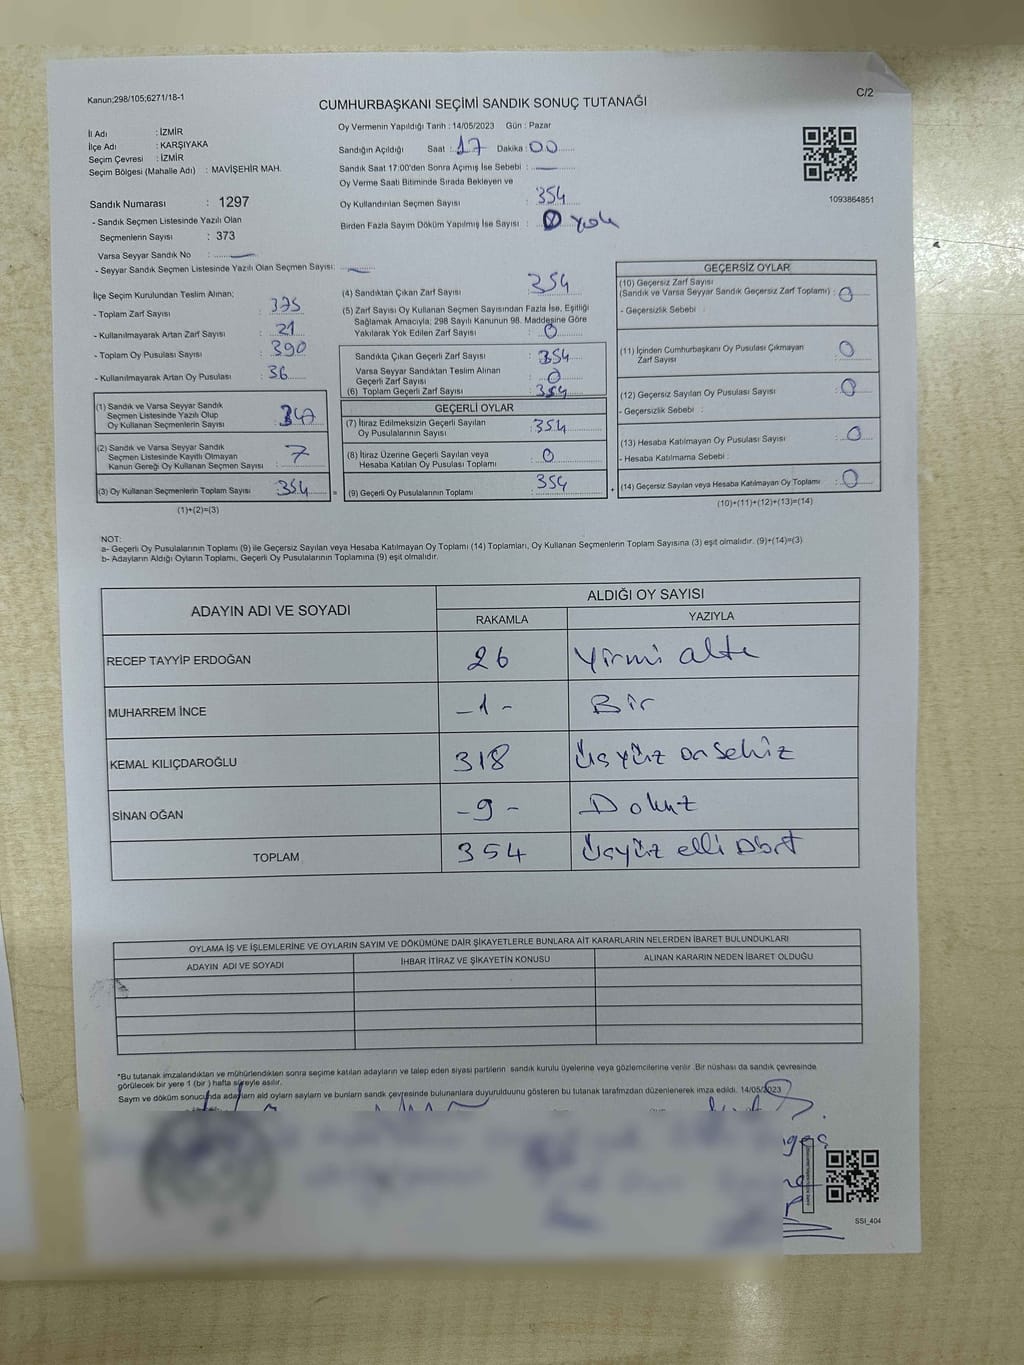 Kanun;298/105;6271/18-1
C/2
CUMHURBAŞKANI SEÇİMİ SANDIK SONUÇ TUTANAĞI
İl Adı : İZMİR
İlçe Adı : KARŞIYAKA
Seçim Çevresi : İZMİR
Seçim Bölgesi (Mahalle Adı) : MAVİŞEHİR MAH.
Sandık Numarası : 1297
- Sandık Seçmen Listesinde Yazılı Olan
Seçmenlerin Sayısı : 373
Varsa Seyyar Sandık No :
- Seyyar Sandık Seçmen Listesinde Yazılı Olan Seçmen Sayısı:
Oy Vermenin Yapıldığı Tarih : 14/05/2023 Gün : Pazar
Sandığın Açıldığı Saat : 17 Dakika : 00
Sandık Saat 17:00'den Sonra Açımış İse Sebebi :
Oy Verme Saati Bitiminde Sırada Bekleyen ve
Oy Kullandırılan Seçmen Sayısı : 354
Birden Fazla Sayım Döküm Yapılmış İse Sayısı : yok
1093864851
İlçe Seçim Kurulundan Teslim Alınan;
- Toplam Zarf Sayısı : 375
- Kullanılmayarak Artan Zarf Sayısı : 21
- Toplam Oy Pusulası Sayısı : 390
- Kullanılmayarak Artan Oy Pusulası : 36
(1) Sandık ve Varsa Seyyar Sandık
Seçmen Listesinde Yazılı Olup
Oy Kullanan Seçmenlerin Sayısı : 347
(2) Sandık ve Varsa Seyyar Sandık
Seçmen Listesinde Kayıtlı Olmayan
Kanun Gereği Oy Kullanan Seçmen Sayısı : 7
(3) Oy Kullanan Seçmenlerin Toplam Sayısı : 354
(1)+(2)=(3)
(4) Sandıktan Çıkan Zarf Sayısı : 354
(5) Zarf Sayısı Oy Kullanan Seçmen Sayısından Fazla İse, Eşitliği
Sağlamak Amacıyla; 298 Sayılı Kanunun 98. Maddesine Göre
Yakılarak Yok Edilen Zarf Sayısı : 0
Sandıkta Çıkan Geçerli Zarf Sayısı : 354
Varsa Seyyar Sandıktan Teslim Alınan
Geçerli Zarf Sayısı : 0
(6) Toplam Geçerli Zarf Sayısı : 354
GEÇERLİ OYLAR
(7) İtiraz Edilmeksizin Geçerli Sayılan
Oy Pusulalarının Sayısı : 354
(8) İtiraz Üzerine Geçerli Sayılan veya
Hesaba Katılan Oy Pusulası Toplamı : 0
(9) Geçerli Oy Pusulalarının Toplamı : 354
GEÇERSİZ OYLAR
(10) Geçersiz Zarf Sayısı
(Sandık ve Varsa Seyyar Sandık Geçersiz Zarf Toplamı) : 0
- Geçersizlik Sebebi :
(11) İçinden Cumhurbaşkanı Oy Pusulası Çıkmayan
Zarf Sayısı : 0
(12) Geçersiz Sayılan Oy Pusulası Sayısı : 0
- Geçersizlik Sebebi :
(13) Hesaba Katılmayan Oy Pusulası Sayısı : 0
- Hesaba Katılmama Sebebi :
(14) Geçersiz Sayılan veya Hesaba Katılmayan Oy Toplamı : 0
(10)+(11)+(12)+(13)=(14)
NOT:
a- Geçerli Oy Pusulalarının Toplamı (9) ile Geçersiz Sayılan veya Hesaba Katılmayan Oy Toplamı (14) Toplamları, Oy Kullanan Seçmenlerin Toplam Sayısına (3) eşit olmalıdır. (9)+(14)=(3)
b- Adayların Aldığı Oyların Toplamı, Geçerli Oy Pusulalarının Toplamına (9) eşit olmalıdır.
ADAYIN ADI VE SOYADI ALDIĞI OY SAYISI
RAKAMLA YAZIYLA
RECEP TAYYİP ERDOĞAN 26 Yirmi altı
MUHARREM İNCE -1- Bir
KEMAL KILIÇDAROĞLU 318 Üçyüz onsekiz
SİNAN OĞAN -9- Dokuz
TOPLAM 354 Üçyüz elli Dört
OYLAMA İŞ VE İŞLEMLERİNE VE OYLARIN SAYIM VE DÖKÜMÜNE DAİR ŞİKAYETLERLE BUNLARA AİT KARARLARIN NELERDEN İBARET BULUNDUKLARI
ADAYIN ADI VE SOYADI İHBAR İTİRAZ VE ŞİKAYETİN KONUSU ALINAN KARARIN NEDEN İBARET OLDUĞU
*Bu tutanak imzalandıktan ve mühürlendikten sonra seçime katılan adayların ve talep eden siyasi partilerin sandık kurulu üyelerine veya gözlemcilerine verilir. Bir nüshası da sandık çevresinde
görülecek bir yere 1 (bir ) hafta süreyle asılır.
Sayım ve döküm sonucunda adayların aldı oyların sayları ve bunların sandk çevresinde bulunanlara duyurulduunu gösteren bu tutanak tarafmızdan düzenlenerek imza edildi. 14/05/2023
SSI_404